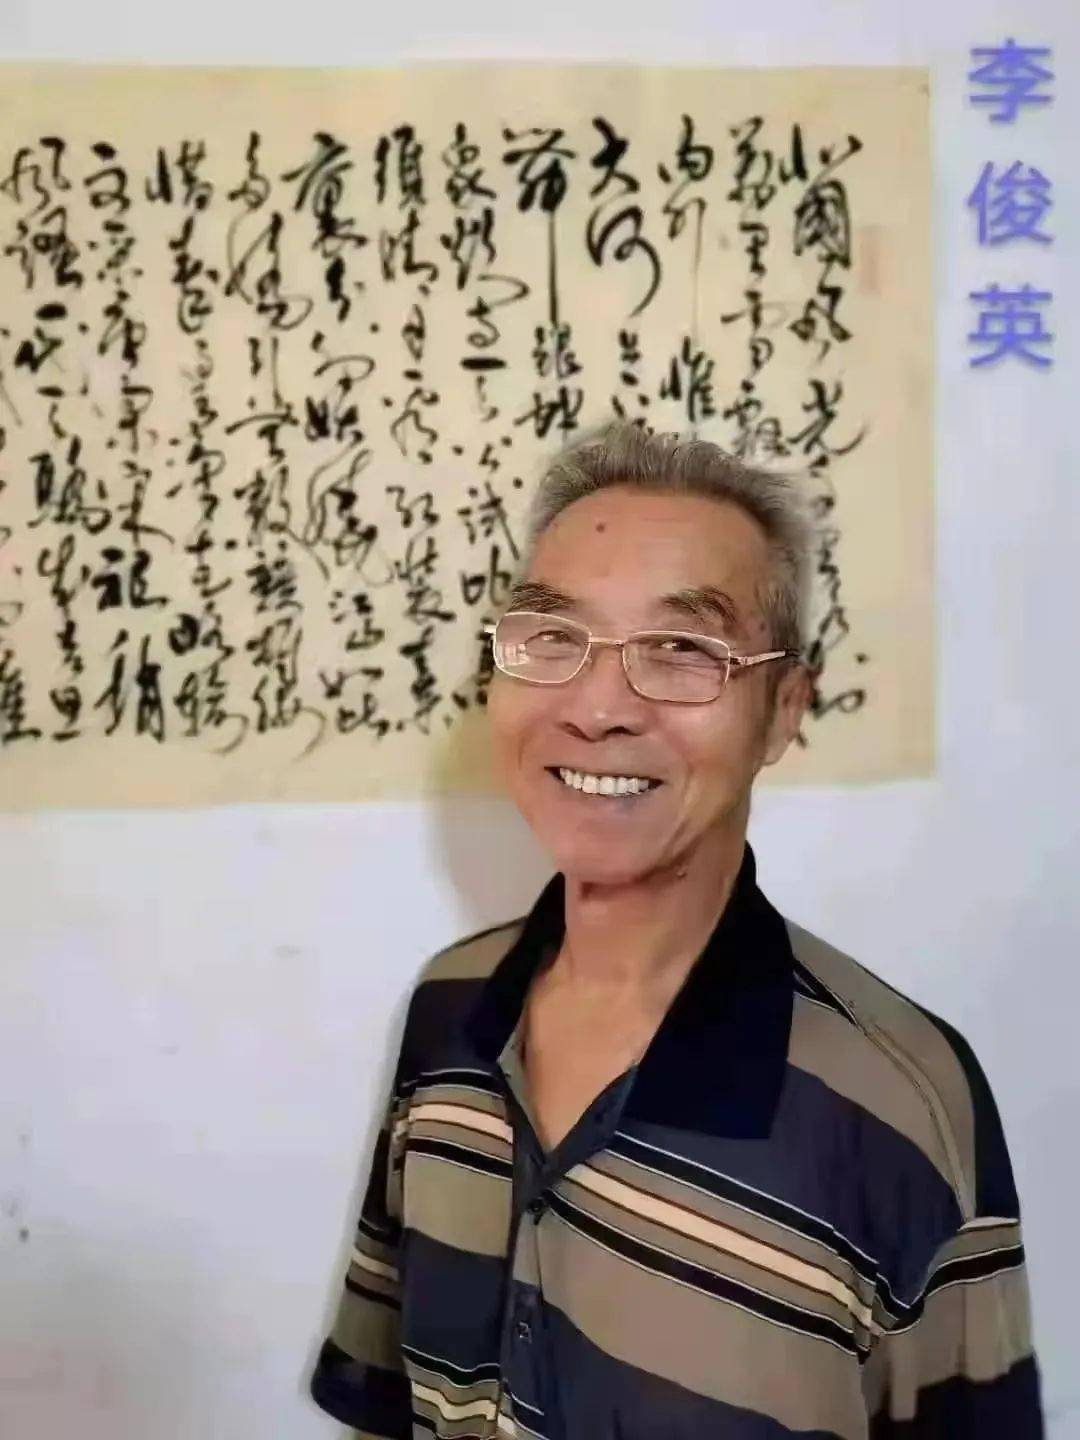 李俊英
北国风光千里冰封
万里雪飘
内外惟
大河上下
舞银蛇
象欲与天公试比高
须晴日看红装素
裹分外妖娆江山如此
多娇引无数英雄竞折腰
惜秦皇汉武略输
文采唐宗宋祖稍
风骚一代天骄成吉思